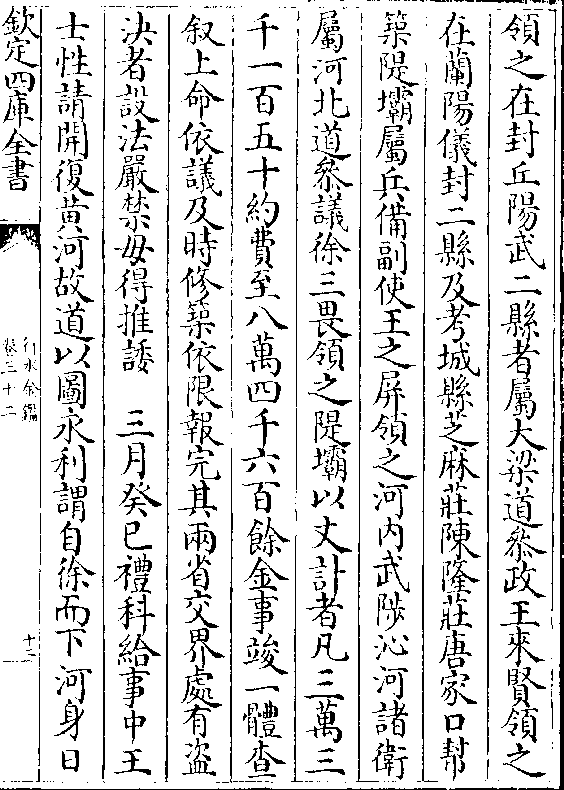 領之在封丘陽武二縣者屬大梁道叅政王來賢領之
在蘭陽儀封二縣及考城縣芝麻莊陳隆莊唐家口幇
築隄壩屬兵備副使王之屏領之河内武陟沁河諸衛
屬河北道叅議徐三畏領之隄壩以丈計者凡三萬三
千一百五十約費至八萬四千六百餘金事竣一體查
叙上命依議及時修築依限報完其兩省交界處有盜
決者設法嚴禁毋得推諉　三月癸巳禮科給事中王
士性請開復黄河故道以圖永利謂自徐而下河身日
欽定四庫全書
行水金鑑
卷三十二
十二